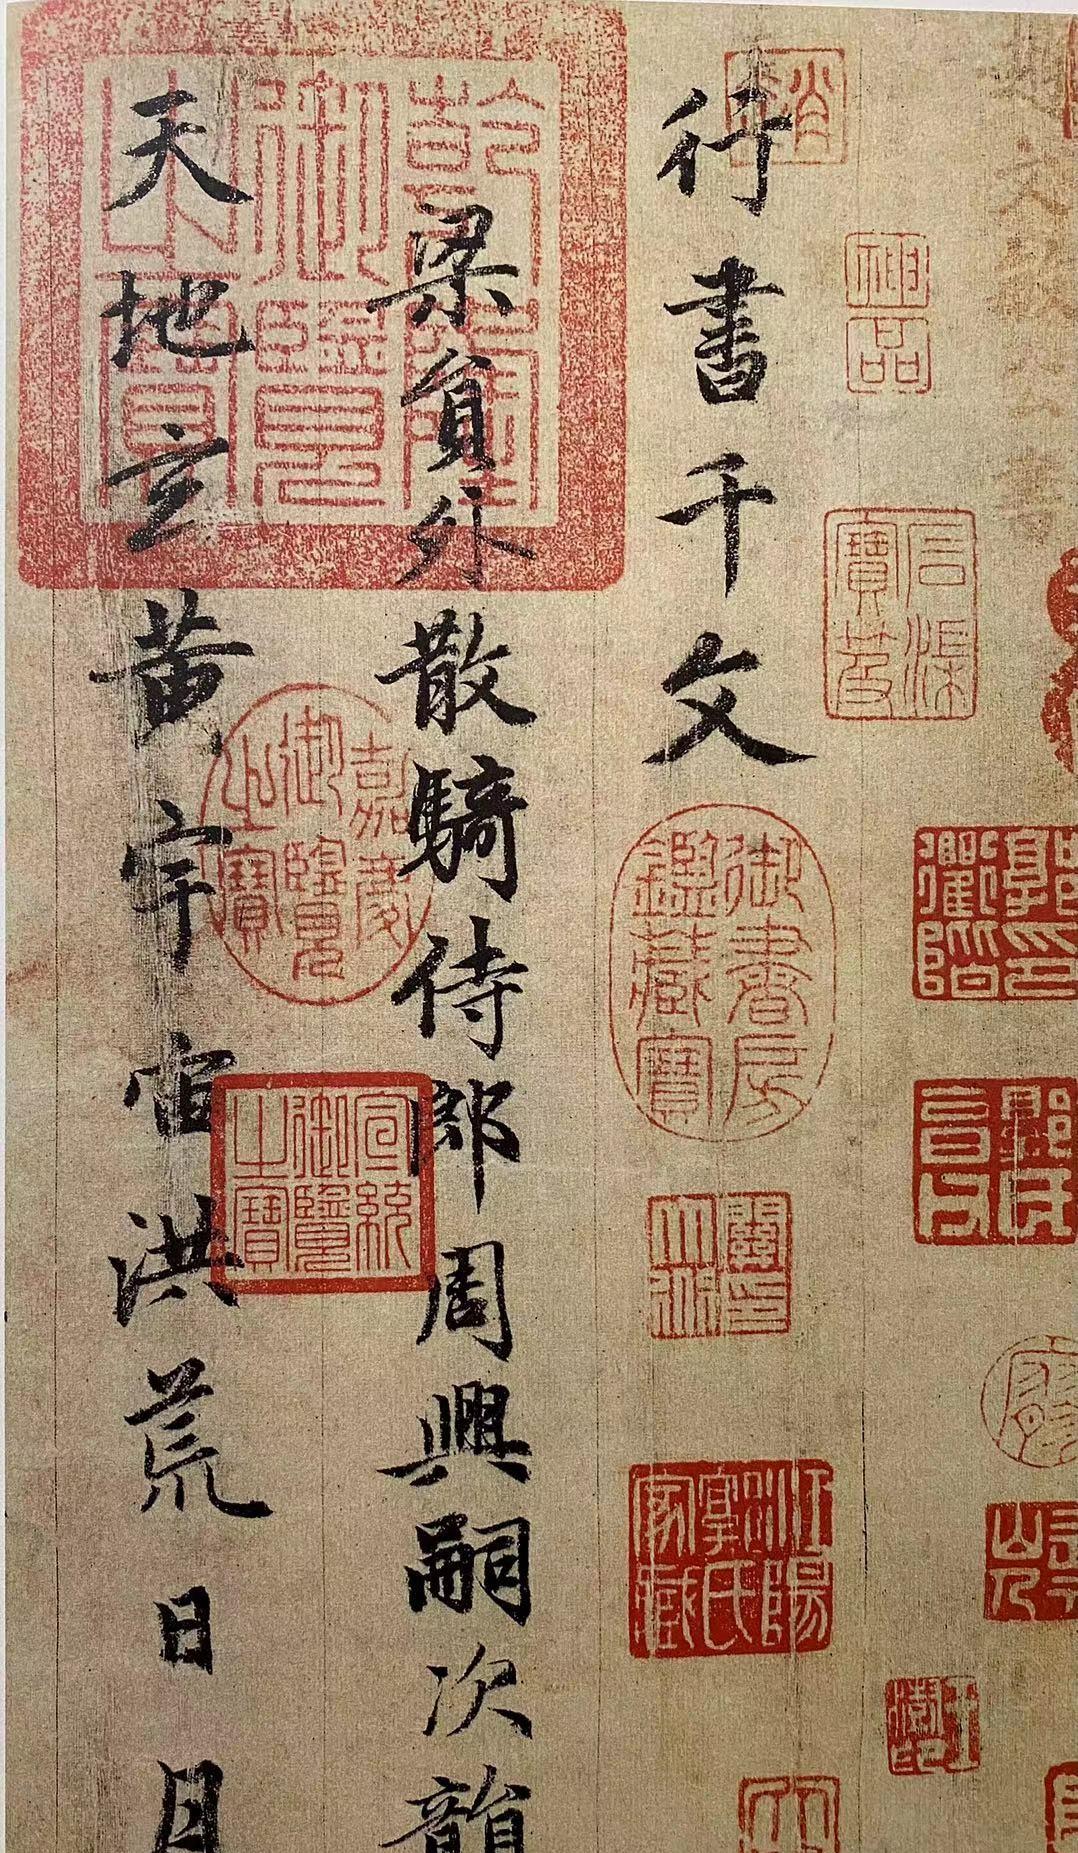 行書千文
梁貟外散騎侍郎周興嗣次韻
天地玄黄宇宙洪荒日月
乾隆御覽之寶
嘉慶御覽之寶
宣統御覽之寶
神品
石渠寶笈
御書房鑑藏寶
江陽
家藏